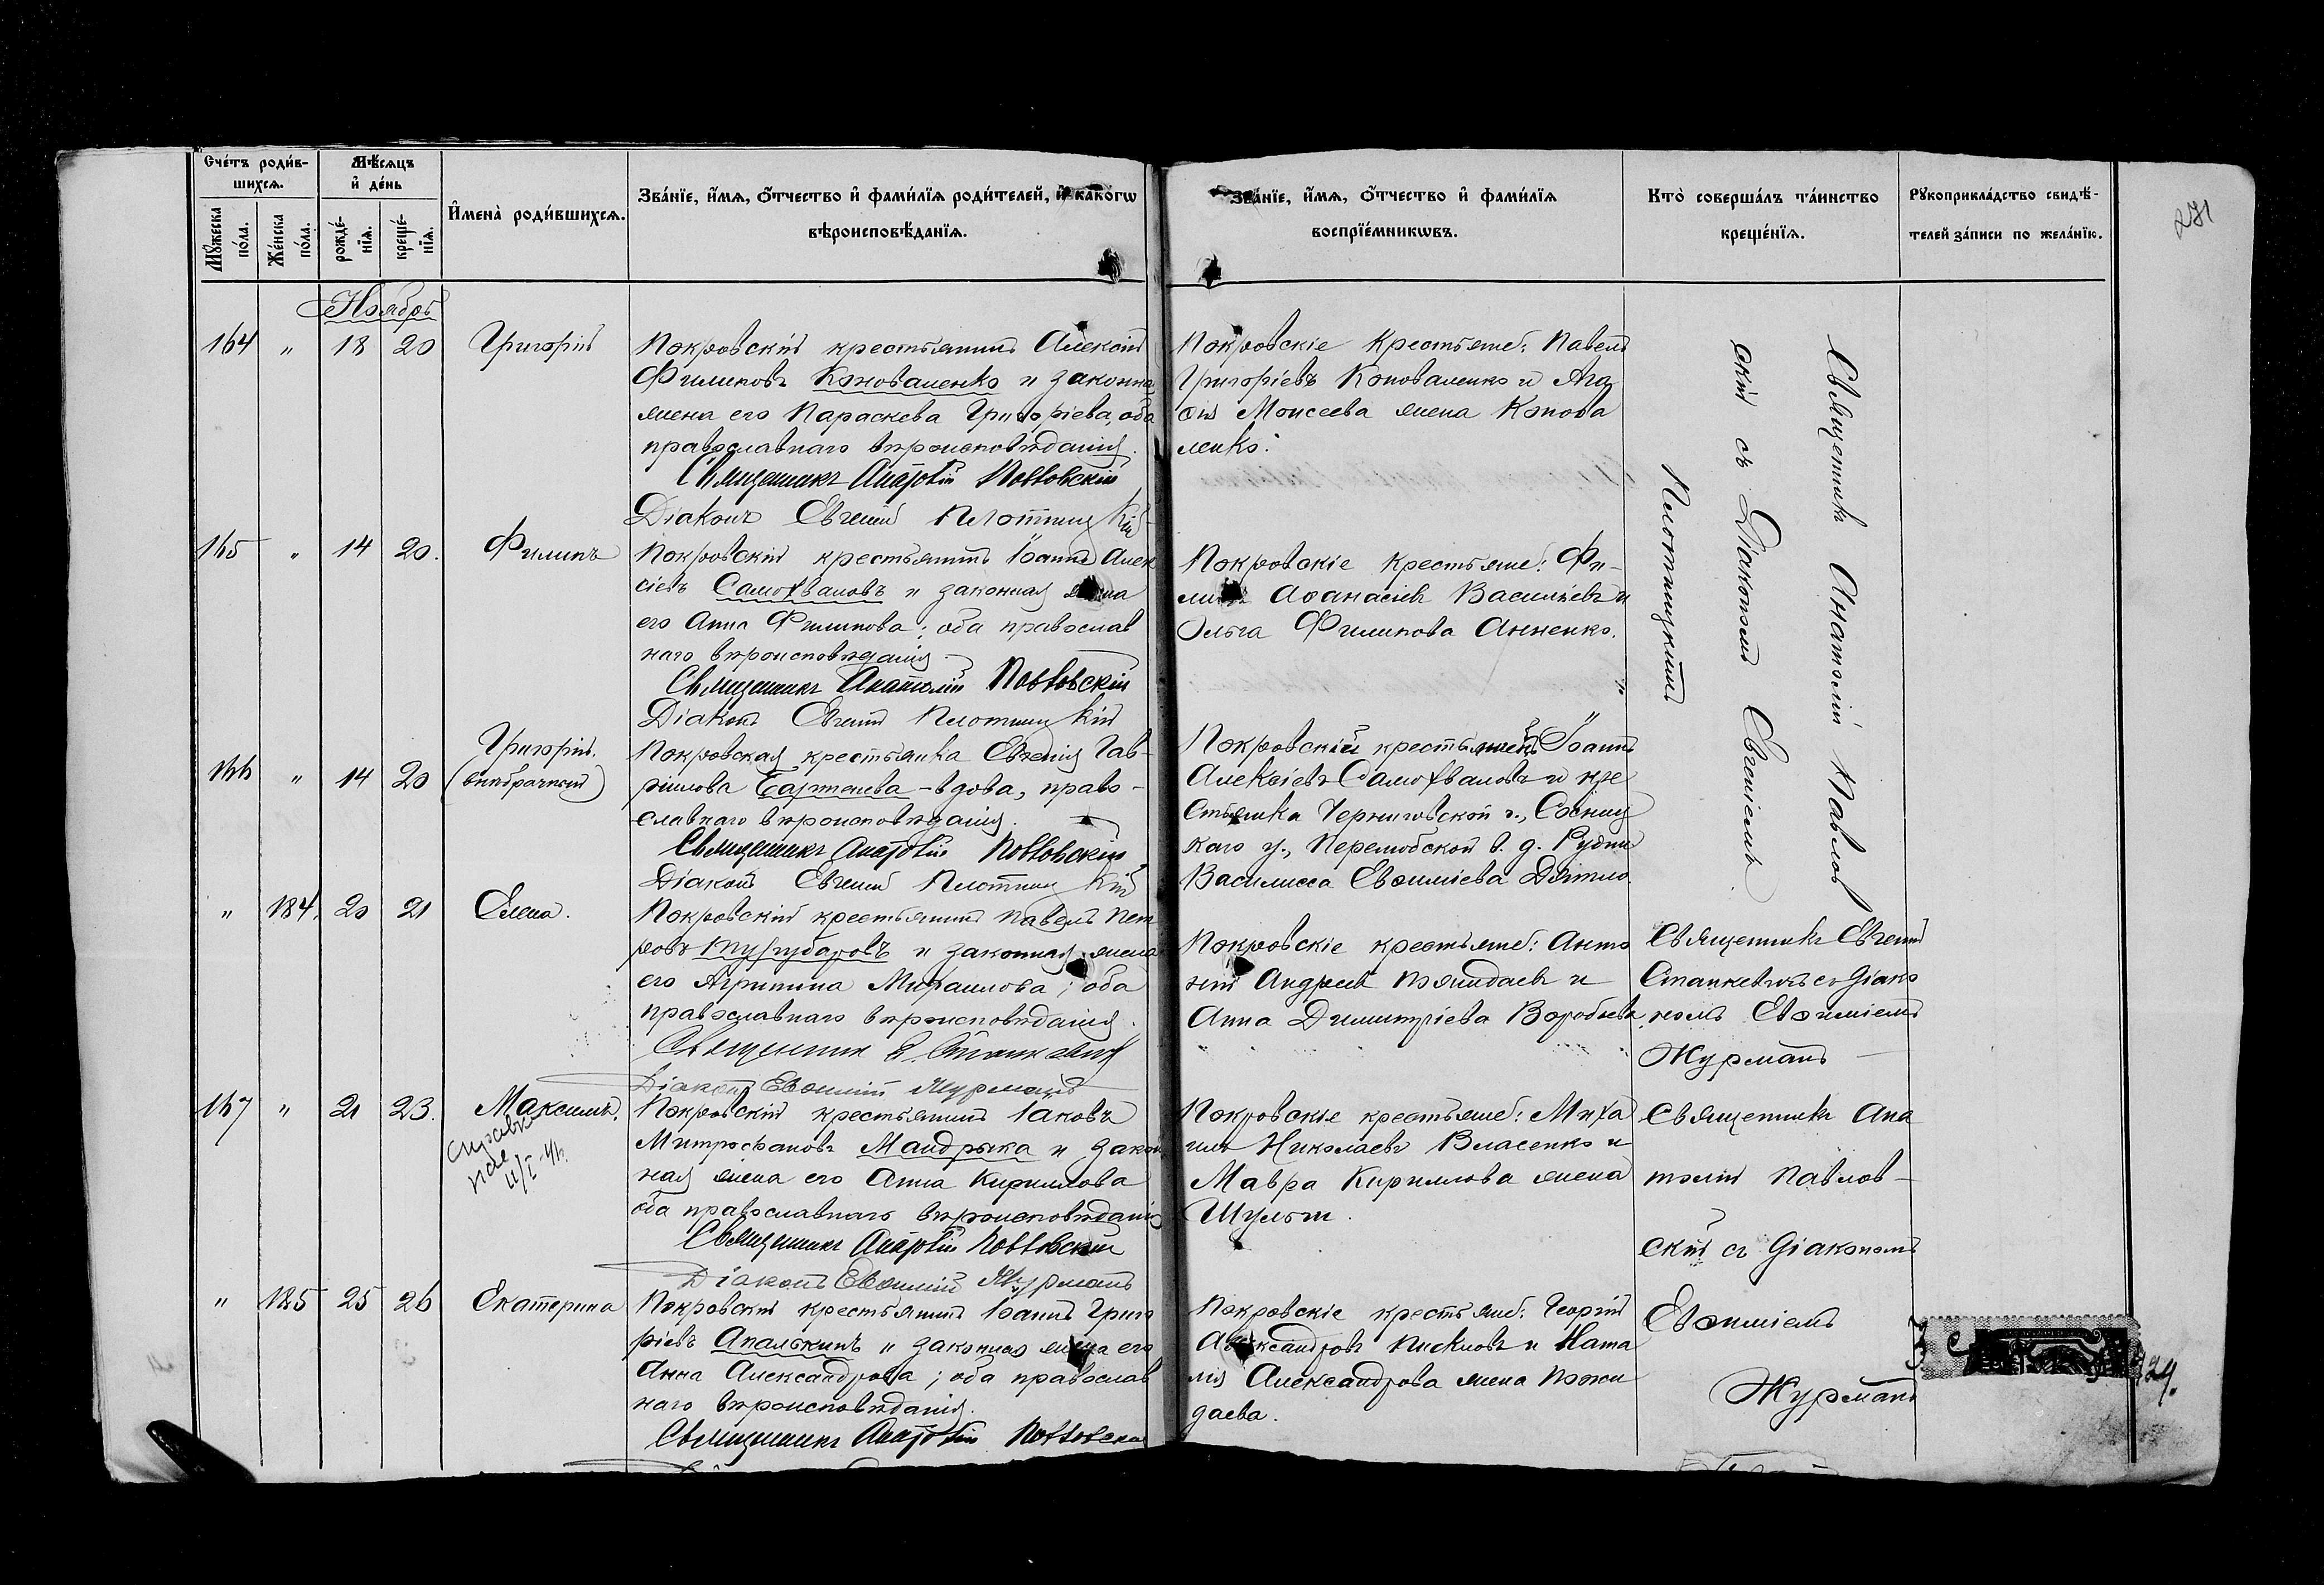 Счетъ родив-
шихся.
Мѣсяцъ
и день
Мужеска
пола.
Женска
пола.
рожде-
нія.
креще-
нія.
Имена родившихся.
Званіе, имя, отчество и фамилія родителей, и какогω
вѣроисповѣданія.
Званіе, имя, отчество и фамилія
воспріемникωвъ.
Кто совершалъ таинство
крещенія.
Рукоприкладство свидѣ-
телей записи по желанію.
271
Ноябрь
164 " 18 20 Григорій
Покровскій крестьянинъ Алексій
Филиповъ Коноваленко и законная
жена его Параскева Григоріева, оба
православнаго вѣроисповѣданія.
Священникъ Анатолій Павловскій
Діаконъ Евгеній Плотницкій
Покровскіе крестьяне: Павелъ
Григоріевъ Коноваленко и Ага
ѳія Моисеева жена Конова
ленко.
Священникъ Анатолій Павлов
скій съ Діакономъ Евгеніемъ
Плотницкимъ
165 " 14 20. Филипъ
Покровскій крестьянинъ Іоаннъ Алек
сіевъ Самохваловъ и законная жена
его Анна Филипова; оба православ
наго вѣроисповѣданія
Священникъ Анатолій Павловскій
Діаконъ Евгеній Плотницкій
Покровскіе крестьяне: Фи-
липъ Аѳанасіевъ Василіевъ и
Ольга Филипова Анненко.
166 " 14 20 Григорій.
(внѣбрачный)
Покровская крестьянка Евгенія Гав-
ріилова – вдова, право-
славнаго вѣроисповѣданія.
Священникъ Анатолій Павловскій
Діаконъ Евгеній Плотницкій
Покровскій крестьянинъ Іоаннъ
Алексіевъ Самохваловъ и кре
стьянка Черниговской г., Сосниц
каго у., Перелюбской в. д. Рудни
Василисса Евѳиміева
" 184. 20 21 Елена.
Покровскій крестьянинъ Павелъ Пет
ровъ и законная жена
его Агрипина Михаилова; оба
православнаго вѣроисповѣданія.
Священникъ Е. Станкевичъ
Діаконъ Евѳимій Журманъ
Покровскіе крестьяне: Анто
ній Андреевъ Пожидаевъ и
Анна Димитріева Воробьева
Священникъ Евгеній
Станкевичъ съ діако
номъ Евѳиміемъ
Журманъ
167 " 21 23. Максимъ.
Покровскій крестьянинъ Іаковъ
Митрофановъ Мандрыка и закон
ная жена его Анна Кириллова
оба православнаго вѣроисповѣданія
Священникъ Анатолій Павловскій
Діаконъ Евѳимій Журманъ
Покровскіе крестьяне: Миха
илъ Николаевъ Власенко и
Мавра Кириллова жена
Шульги.
Священникъ Ана
толій Павлов-
скій съ діакономъ
Евѳиміемъ
Журманъ
" 185 25 26 Екатерина
Покровскій крестьянинъ Іоаннъ Григо
ріевъ Апалькинъ и законная жена его
Анна Александрова; оба православ
наго вѣроисповѣданія.
Священникъ Анатолій Павловскій
Покровскіе крестьяне: Георгій
Александровъ Писклов и Ната
лія Александрова жена Пожи
даева.